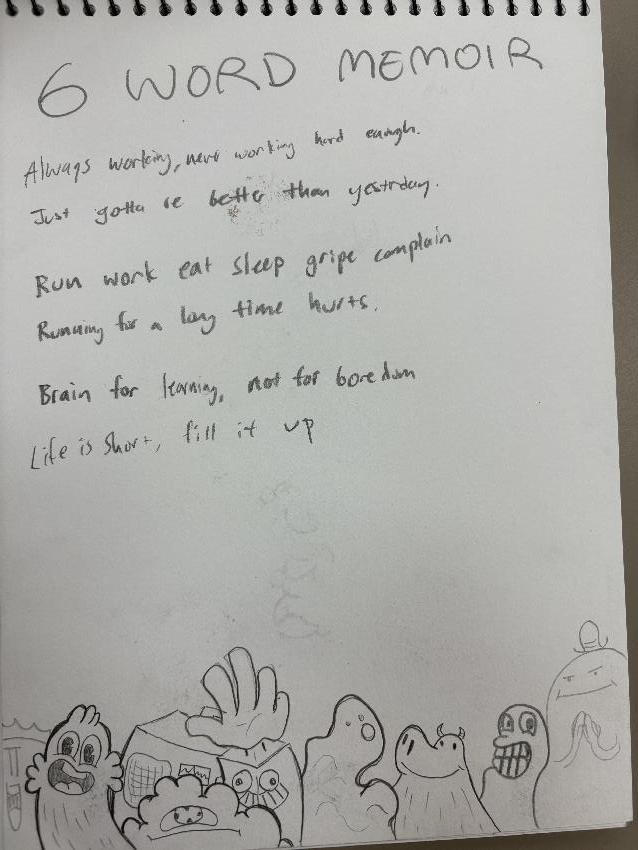 6 WORD MEMOIR
Always working, never working hard enough.
Just gotta be better than yestrday.
Run work eat sleep gripe complain
Running for a long time hurts.
Brain for learning, not for boredum
Life is short, fill it up